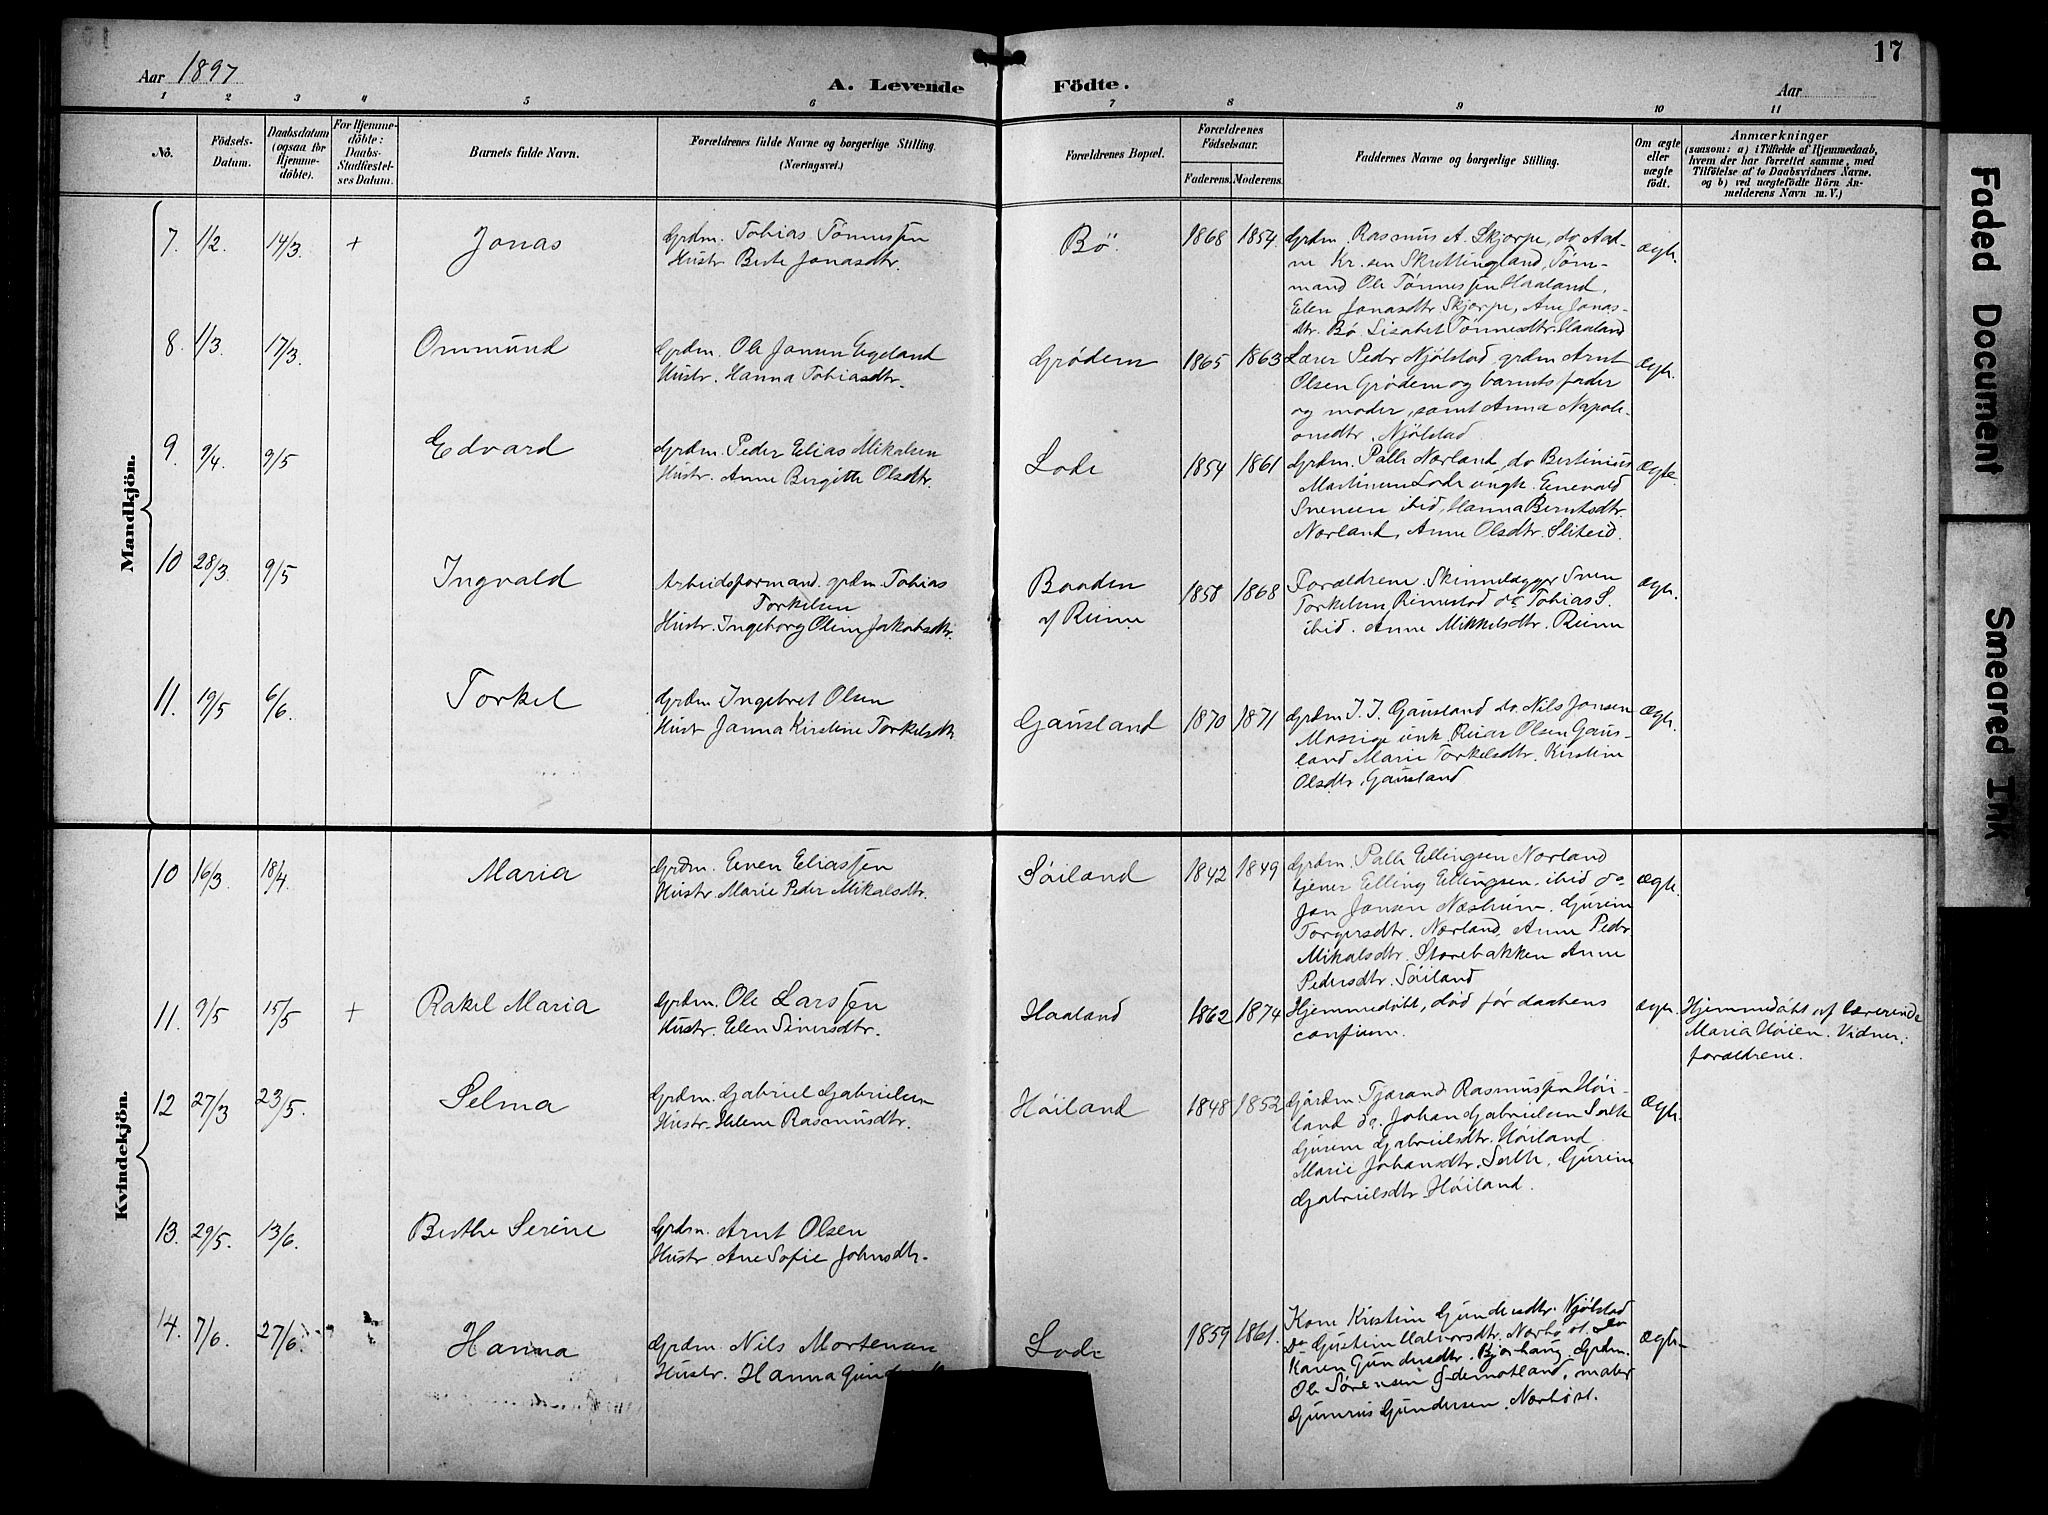 17
Aar 1897
A. Levende Födte.
Aar
1 2 3 4 5 6 7 8 9 10 11
No.
Födsels-Datum.
Daabsdatum (ogsaa for Hjemmedöbte).
For Hjemmedöbte: Daabs-Stadfæstelses Datum.
Barnets fulde Navn.
Forældrenes fulde Navne og borgerlige Stilling.
(Næringsvei.)
Forældrenes Bopæl.
Forældrenes Födselsaar.
Faderens. Moderens.
Faddernes Navne og borgerlige Stilling.
Om ægte eller uægte födt.
Anmærkninger
(saasom: a) i Tilfælde af Hjemmedaab, hvem der har forrettet samme, med Tilföielse af to Daabsvidners Navne. og b) ved uægtefödte Börn Anmelderens Navn m. V.)
Mandkjön.
7. 1/2. 14/3. + Jonas
Grdm. Tobias Tönnessen
Hustr Berte Jonasdtr.
Bö. 1868 1854
Grdm. Rasmus A. Skjorpe, do Aad-
ne Kr.sen Skrettingland, Töm-
mand Ole Tönnessen Haaland,
Elen Jonasdtr Skjorpe, Ane Jonas-
dtr. Bö. Lisabet Tönnesdtr. Haaland
ægte.
8. 1/3. 17/3. Ommund
Grdm. Ole Jonsen Egeland
Hustr. Hanna Tobiasdtr.
Grödem 1865 1863
Lærer Peder Njölstad, grdm Arnt
Olsen Grödem og barnets fader
og moder, samt Anna Napole-
onsdtr. Njölstad
ægte.
9. 9/4. 9/5 Edvard
Grdm. Peder Elias Mikalsen
Hustr. Anne Birgitte Olsdtr.
Lode 1854 1861
Grdm. Palle Nærland, do Bertinius
Martinsen Lode ungk. Enevald
Svensen ibid, Hanna Berntsdtr.
Nærland, Anne Olsdtr. Sliteid.
ægte.
10 28/3. 9/5 Ingvald
Arbeidsformand. grdm. Tobias
Torkelsen
Hustr. Ingeborg Oline Jakobsdtr.
Baaden
af Reime 1858 1868
Forældrene. Skinnelægger Sven
Torkelsen Rimestad do Tobias S.
ibid. Anne Mikkelsdtr. Reime
ægte.
11. 19/5 6/6. Torkel
Grdm Ingebret Olsen
Hustr Janna Kirstine Torkelsdtr.
Gausland 1870 1871
Grdm I. I. Gausland do. Nils Jonsen
Mossige unk. Reiar Olsen Gaus-
land Marie Torkelsdtr. Kirstine
Olsdtr. Gausland
ægte.
Kvindekjön.
10 16/3. 18/4. Maria
Grdm. Even Eliassen
Hustr Marie Peder Mikalsdtr.
Söiland 1842 1849
Grdm. Palle Ellingsen Nærland
tjener Elling Ellingsen, ibid do
Jon Jonsen Næsheim. Gurine
Torgersdtr. Nærland, Anne Peder
Mikalsdtr. Storebakken Anne
Pedersdtr. Söiland
ægte.
11. 9/5 15/5 + Rakel Maria
Grdm. Ole Larssen
Hustr. Elen Siversdtr.
Haaland 1862 1874
Hjemmedöbt, död för daabens
confirm.
ægte.
Hjemmedöbt af lærerinde
Maria Höien. Vidner:
forældrene.
12 27/3 23/5. Selma
Grdm. Gabriel Gabrielsen
Hustr. Helene Rasmusdtr.
Höiland 1848 1852
Gårdm. Tjærand Rasmussen Höi-
land do. Johan Gabrielsen Salte
Gurine Gabrielsdtr. Höiland
Marie Johansdtr. Salte, Gurine
Gabrielsdtr. Höiland.
ægte.
13. 29/5. 13/6. Berthe Serine
Grdm. Arnt Olsen
Hustr. Ane Sofie Johnsdtr.
14. 7/6. 27/6. Hanna
Grdm. Nils Mortensen
Hustr. Hanna
Lode 1859 1861.
Kone Kristine Gundersdtr. Njölstad
Do Gustine Halvorsdtr. Nærbö st. Do
Karen Gundersdtr. Bjorhaug. Grdm.
Ole Sörensen Ødemotland, maler
Gumerius Gundersen. Nærböst.
ægte
Faded Document
Smeared Ink